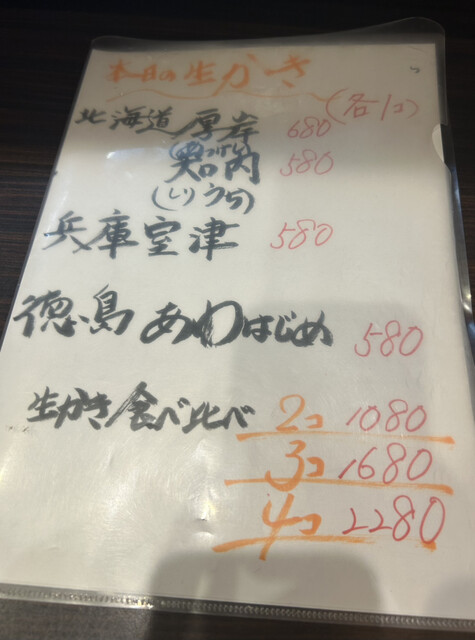 本日の生かき
(各1コ)
北海道 厚岸 680
(あっけし)
知内 580
(しりうち)
兵庫室津 580
徳島 あわはじめ 580
生かき食べ比べ 2コ 1080
3コ 1680
4コ 2280